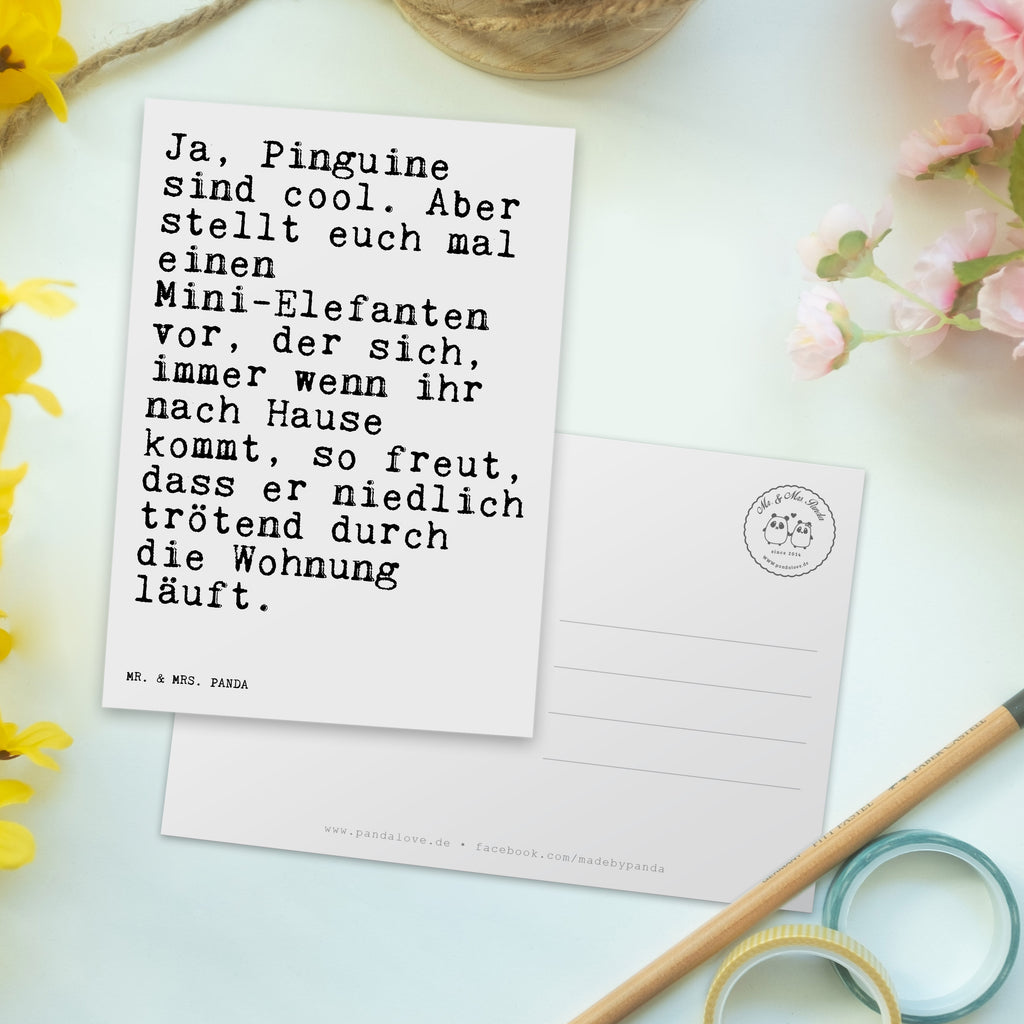 Ja, Pinguine
sind cool. Aber
stellt euch mal
einen
Mini-Elefanten
vor, der sich,
immer wenn ihr
nach Hause
kommt, so freut,
dass er niedlich
trötend durch
die Wohnung
läuft.
MR. & MRS. PANDA
Mr. & Mrs. Panda
since 2014
www.pandalove.de
www.pandalove.de • facebook.com/madebypanda
PITT PASTEL
FABER-CASTELL